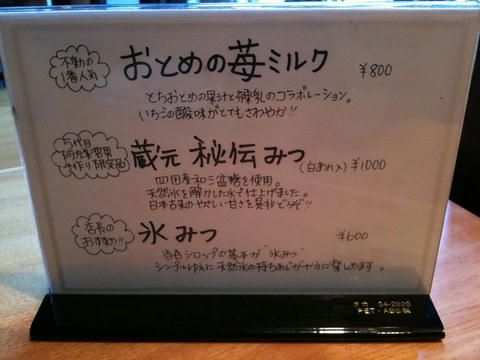 不動の
1番人気
おとめの苺ミルク ¥800
とちおとめの果汁と練乳のコラボレーション。
いちごの酸味がとてもさわやか!!
五代目
手作り限定品
蔵元 秘伝みつ (白あん入) ¥1000
四国産和三盆糖を使用。
天然氷を解かした水で仕上げました。
日本古来のやさしい甘さを是非どうぞ!!
店長の
おすすめ!!
氷みつ ¥600
当店シロップの基本が"氷みつ"
シンプルゆえに天然氷の持ちあじが十分に楽しめます。
34-2620
PET・ABS製